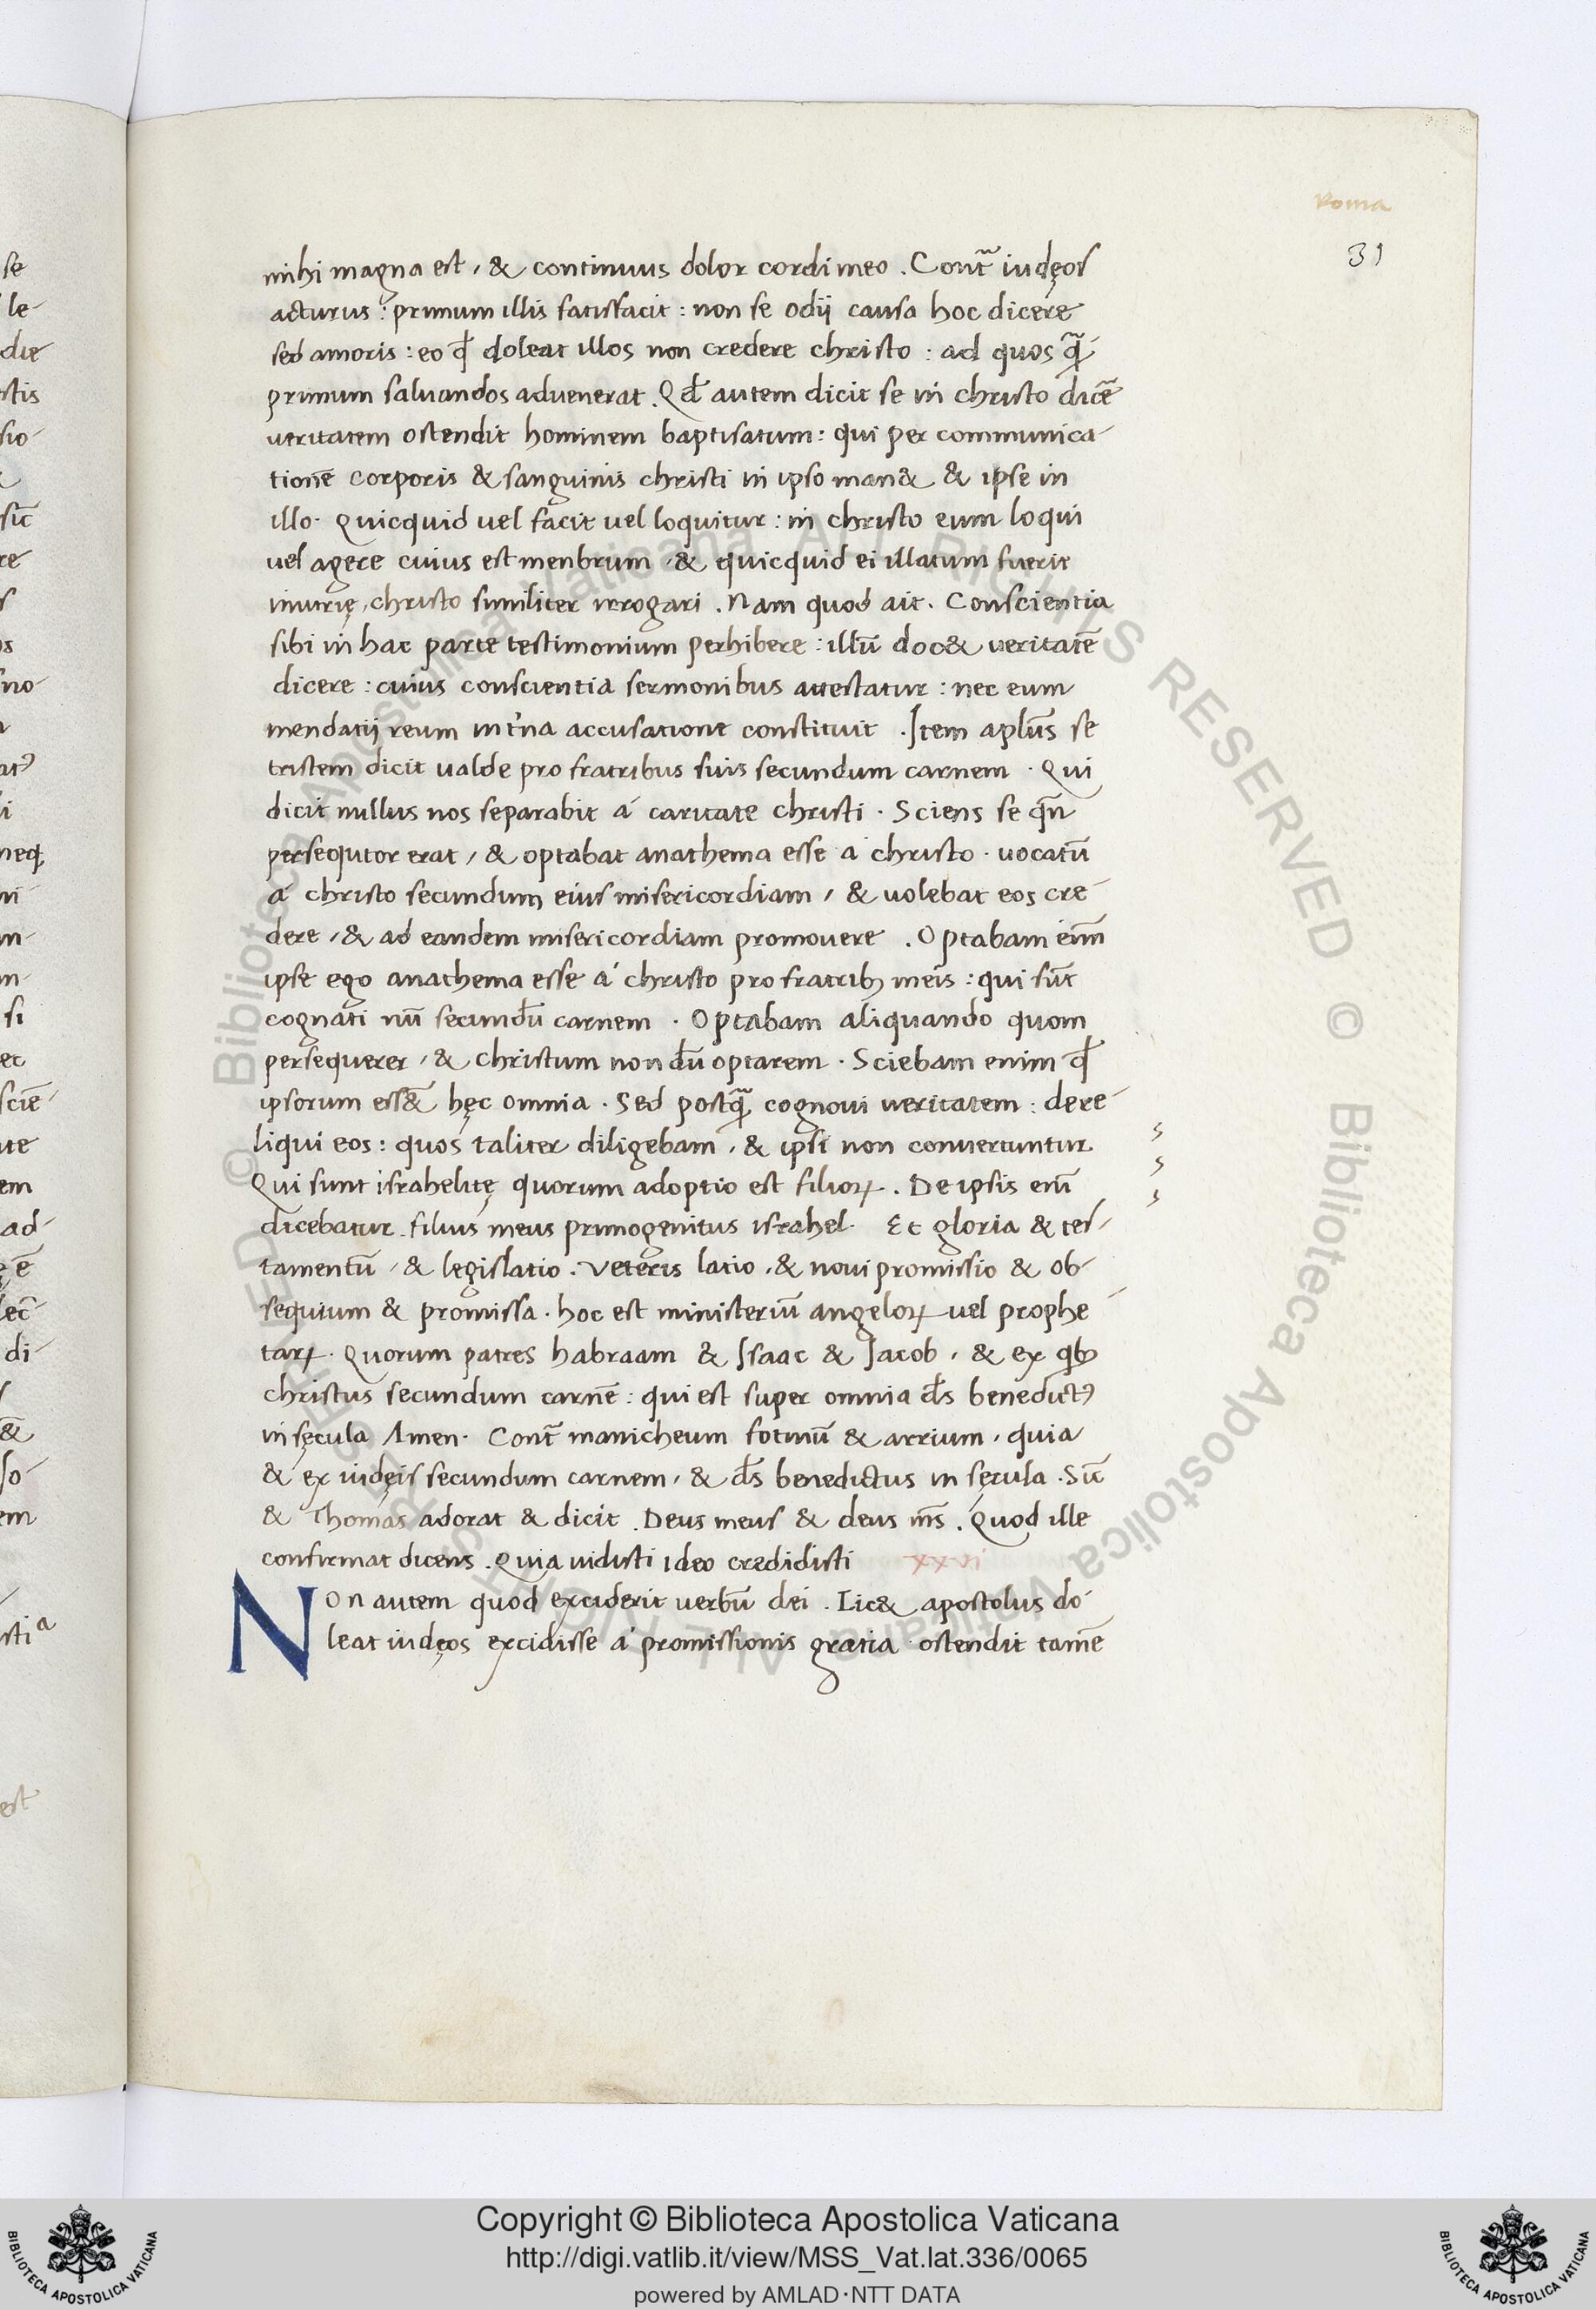 Roma
31
mihi magna est, & continuus dolor cordi meo. Cont̃ iudęos
acturus: primum illis satisfacit: non se odij causa hoc dicere
sed amoris: eo qđ doleat illos non credere christo: ad quos q̃
primum saluandos aduenerat. Qđ autem dicit se in christo dicẽ
ueritatem ostendit hominem baptisatum: qui per communica-
tionẽ corporis & sanguinis christi in ipso man& & ipse in
illo. Quicquid uel facit uel loquitur: in christo eum loqui
uel agere cuius est menbrum, & quicquid ei illatum fuerit
iniurię, christo similiter irrogari. Nam quod ait. Conscientia
sibi in hac parte testimonium perhibere: illũ doc& ueritatẽ
dicere: cuius conscientia sermonibus attestatur: nec eum
mendatij reum int'na accusatione constituit. Item apl̃us se
tristem dicit ualde pro fratribus suis secundum carnem. Qui
dicit nullus nos separabit á caritate christi. Sciens se qñ
persequtor erat, & optabat anathema esse a christo. uocatũ
á christo secundum eius misericordiam, & uolebat eos cre-
dere, & ad eandem misericordiam promouere. Optabam eim̃
ipse ego anathema esse á christo pro fratribꝫ meis: qui sũt
cognati nũ secundũ carnem. Optabam aliquando quom
persequerer, & christum nondũ optarem. Sciebam enim qđ
ipsorum ess&̃ hęc omnia. Sed postq̃ cognoui ueritatem: dere-
liqui eos: quos taliter diligebam, & ipsi non conuertuntur
Qui sunt israhelitę quorum adoptio est filioꝝ. De ipsis enĩ
dicebatur. filius meus primogenitus israhel. Et gloria & tes-
tamentũ, & legislatio. Veteris latio, & noui promissio & ob-
sequium & promissa. hoc est ministeriũ angeloꝝ uel prophe-
taꝝ. Quorum patres habraam & Isaac & Jacob, & ex qibꝫ
christus secundum carnẽ: qui est super omnia d̃s benedictꝰ
in sęcula Amen. Cont̃ manicheum fotinũ & arrium, quia
& ex iudęis secundum carnem, & d̃s benedictus in sęcula. Sic̃
& Thomas adorat & dicit. Deus meus & deus m̃s. Quod ille
confirmat dicens. Quia uidisti ideo credidisti xxvi
Non autem quod exciderit uerbũ dei. Lic& apostolus do-
leat iudęos excidisse á promissionis gratia. ostendit tamẽ
Copyright © Biblioteca Apostolica Vaticana
http://digi.vatlib.it/view/MSS_Vat.lat.336/0065
powered by AMLAD·NTT DATA